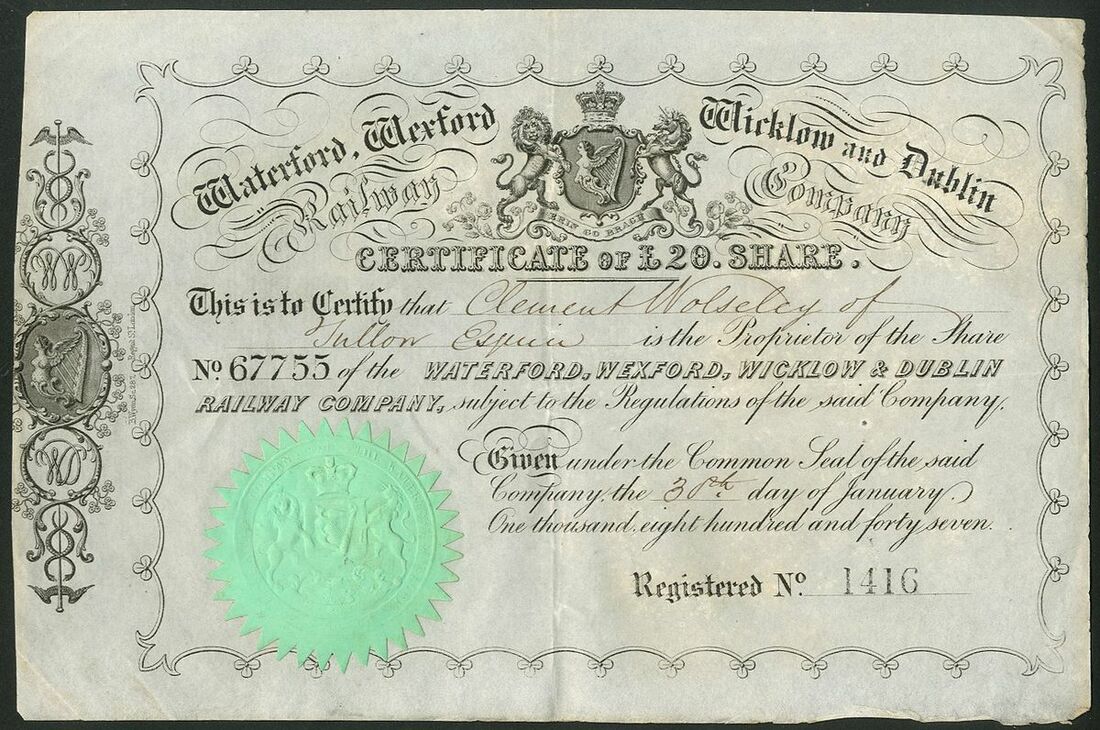 Waterford, Wexford Wicklow and Dublin
Railway Company
ERIN GO BRAGH
CERTIFICATE OF £20. SHARE.
This is to Certify that Clement Wolseley of
Tullow Esquire is the Proprietor of the Share
No. 67755 of the WATERFORD, WEXFORD, WICKLOW & DUBLIN
RAILWAY COMPANY, subject to the Regulations of the said Company.
Given under the Common Seal of the said
Company, the 30th day of January.
One thousand, eight hundred and forty seven.
Registered No. 1416
WW
WD